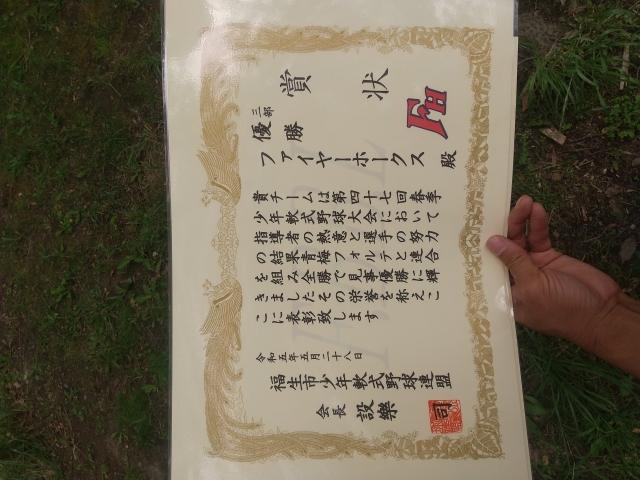 賞状
三部
優勝
ファイヤーホークス 殿
FH
貴チームは第四十七回春季
少年軟式野球大会において
指導者の熱意と選手の努力
の結果青梅フォルテと連合
を組み全勝で見事優勝に輝
きましたその栄誉を称えこ
こに表彰致します
令和五年五月二十八日
福生市少年軟式野球連盟
会長 設樂 司